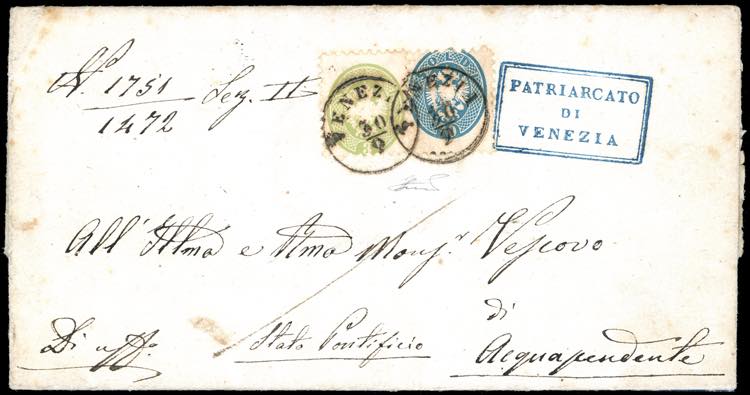 N. 1751 Sez. II
1472
VENEZIA
30
9
VENEZIA
30
9
PATRIARCATO
DI
VENEZIA
All' Illmo e Rmo Monsr Vescovo
di
Di uffo.
Stato Pontificio
Acquapendente